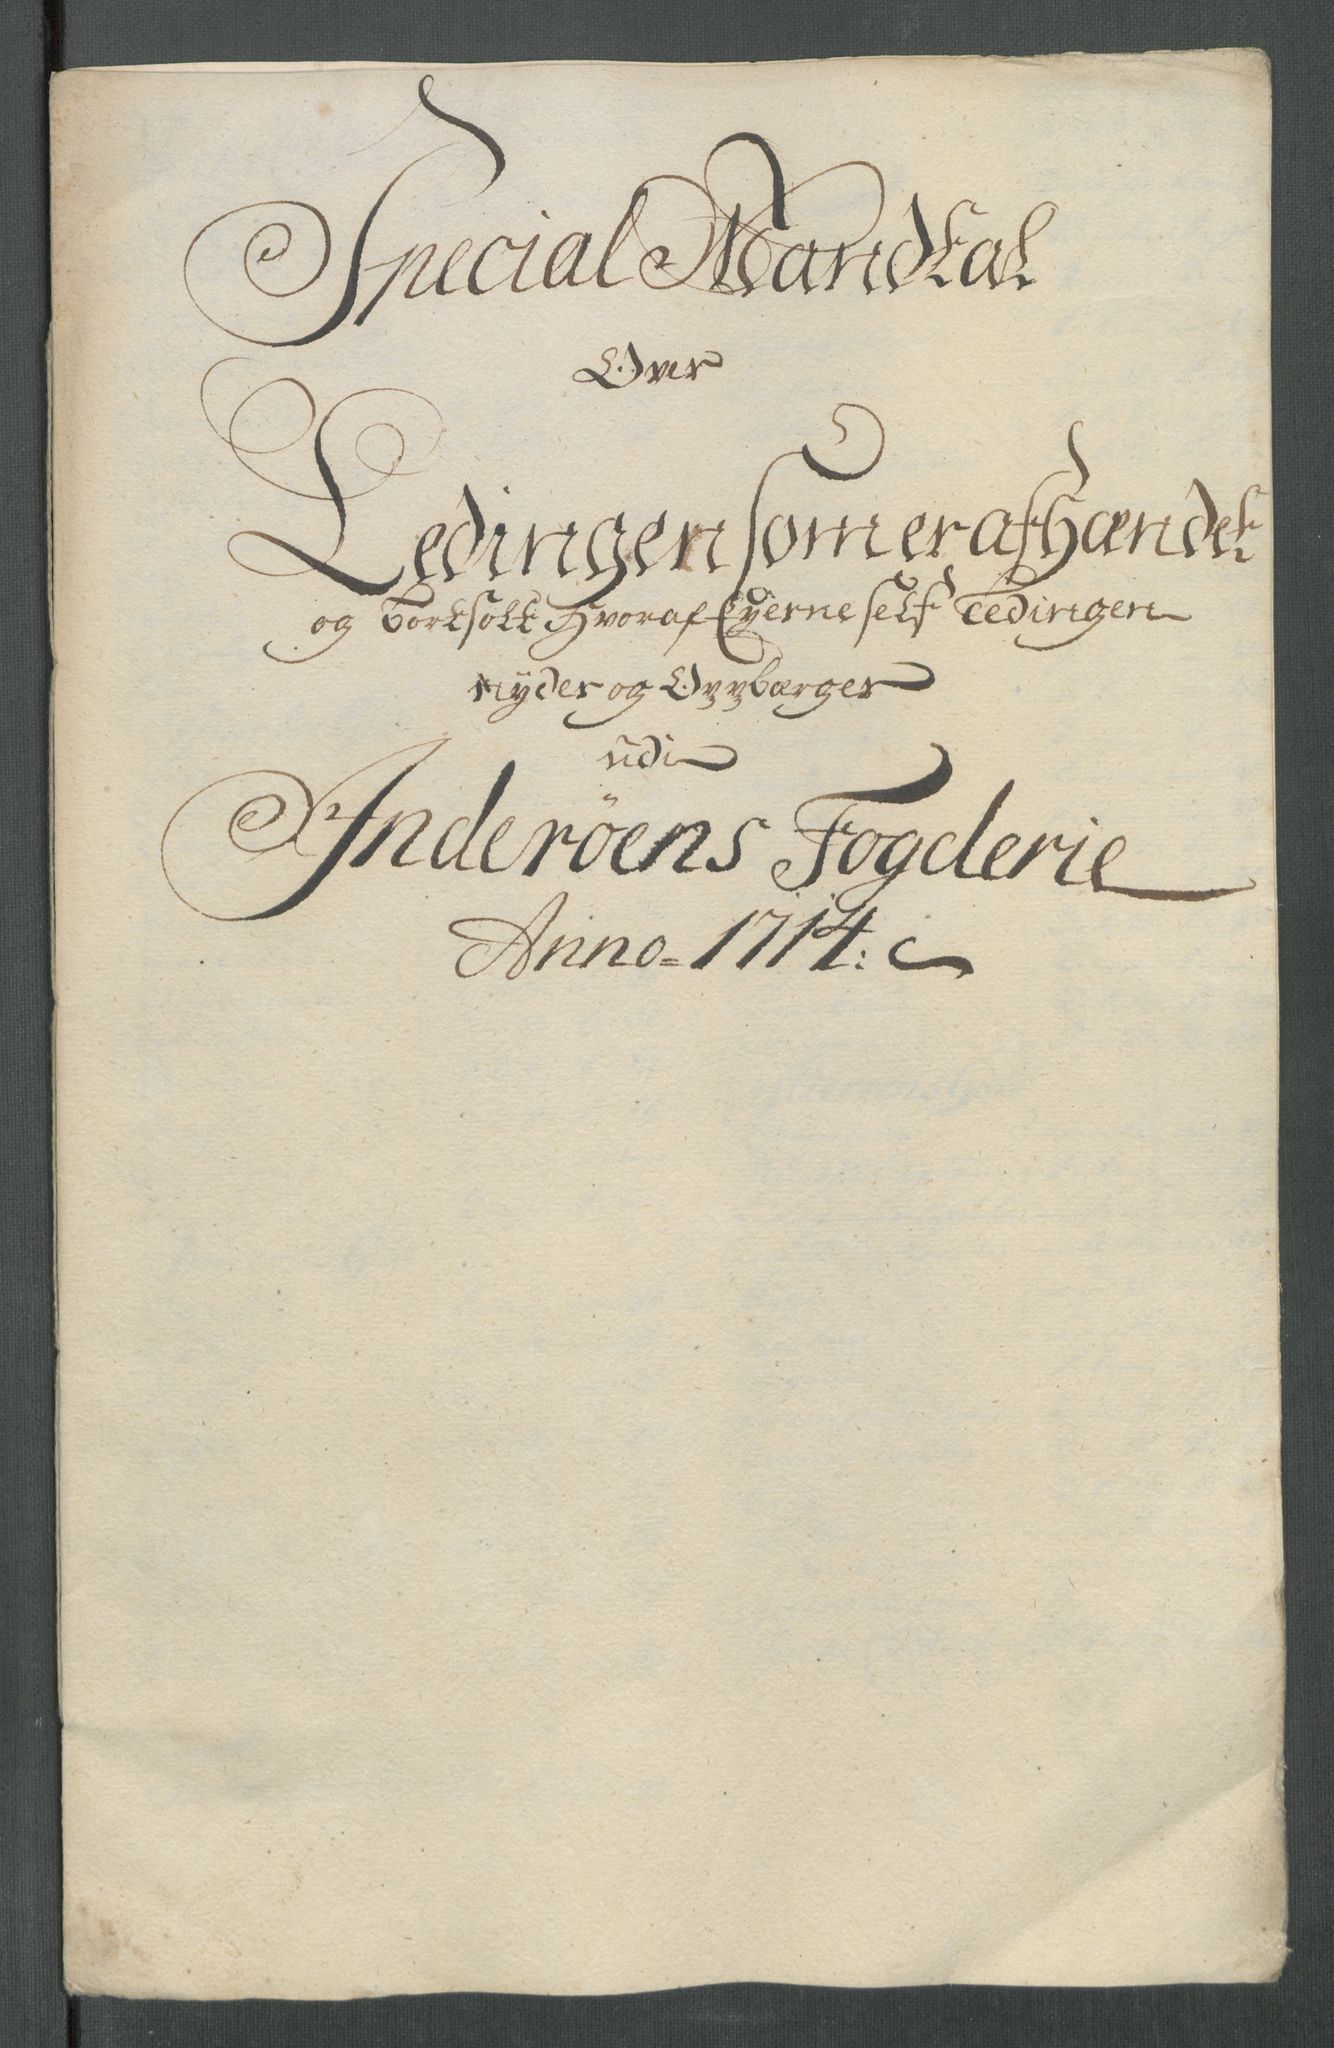 Special Mandtal
Over
Ledingen som er afhændet
og bortsolt hvoraf Eyerne self Ledingen
nyder og Opbærger
udi
Inderöens Fogderie
Anno = 1714: